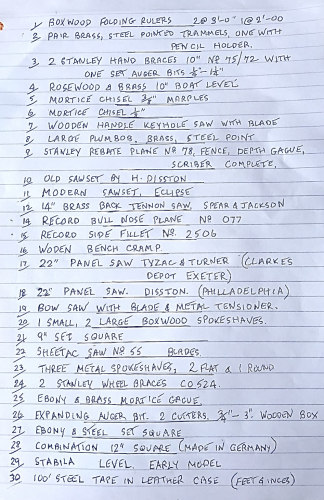 1 BOXWOOD FOLDING RULERS 2@3'-0" 1@2'-00
2 PAIR BRASS, STEEL POINTED TRAMMELS, ONE WITH
PENCIL HOLDER.
3 2 STANLEY HAND BRACES 10" Nº 75/72 WITH
ONE SET AUGER BITS
4 ROSEWOOD & BRASS 10" BOAT LEVEL
5 MORTICE CHISEL 3/8" MARPLES
6 MORTICE CHISEL
7 WOODEN HANDLE KEYHOLE SAW WITH BLADE
8 LARGE PLUMBOB, BRASS, STEEL POINT
9 STANLEY REBATE PLANE Nº 78, FENCE, DEPTH GAGUE,
SCRIBER COMPLETE,
10 OLD SAWSET BY H. DISSTON
11 MODERN SAWSET, ECLIPSE
12 14" BRASS BACK TENNON SAW, SPEAR & JACKSON
14 RECORD BULL NOSE PLANE Nº 077
15 RECORD SIDE FILLET Nº 2506
16 WODEN BENCH CRAMP.
17 22" PANEL SAW TYZAC & TURNER (CLARKES
DEPOT EXETER)
18 22" PANEL SAW. DISSTON. (PHILLADELPHIA)
19 BOW SAW WITH BLADE & METAL TENSIONER.
20 1 SMALL, 2 LARGE BOXWOOD SPOKESHAVES.
21 9" SET SQUARE
22 SHEETAC SAW Nº 55 BLADES.
23 THREE METAL SPOKESHAVES, 2 FLAT & 1 ROUND
24 2 STANLEY WHEEL BRACES CO 524.
25 EBONY & BRASS MORTICE GAGUE.
26 EXPANDING AUGER BIT. 2 CUTTERS, 3/4"-3". WOODEN BOX
27 EBONY & STEEL SET SQUARE
28 COMBINATION 12" SQUARE (MADE IN GERMANY)
29 STABILA LEVEL. EARLY MODEL
30 100' STEEL TAPE IN LEATHER CASE (FEET & INCES)